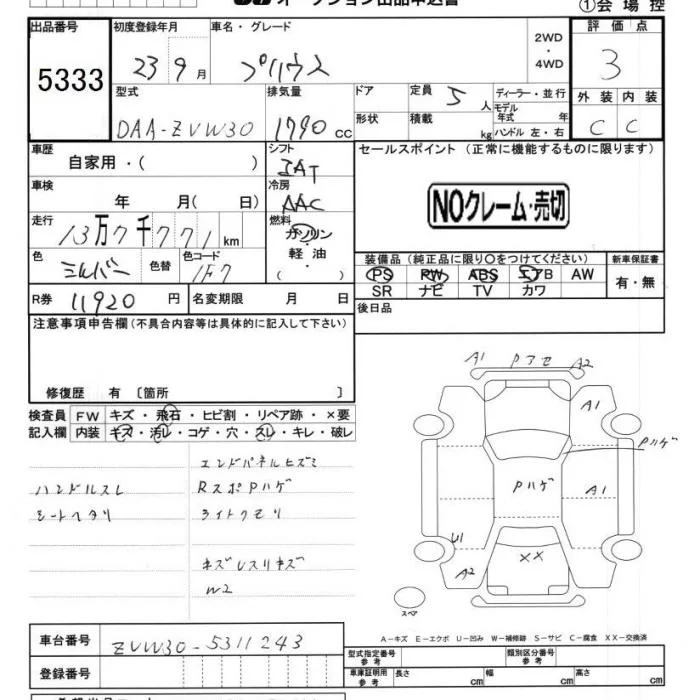 オークション出品申込書
①会場控
出品番号 初度登録年月 車名・グレード 評価点
5333 23 9月 プリウス 2WD・4WD 3
型式 排気量 ドア 定員 5人 ディーラー・並行 外装 内装
DAA-ZVW30 1790cc 形状 積載 kg モデル年式 年 ハンドル 左・右 C C
車歴 シフト セールスポイント (正常に機能するものに限ります)
自家用・( ) IAT
車検 冷房
年 月( 日) AAC NOクレーム・売切
走行 燃料
13万7千771km ガソリン・軽油・( )
色 色替 色コード 装備品 (純正品に限り〇をつけてください) 新車保証書
シルバー 1F7 PS PW ABS エアB AW 有・無
SR ナビ TV カワ
R券 11920円 名変期限 月 日 後日品
注意事項申告欄(不具合内容等は具体的に記入して下さい)
修復歴 有 〔箇所 〕
検査員 FW キズ・飛石・ヒビ割・リペア跡・×要
記入欄 内装 キズ・汚レ・コゲ・穴・スレ・キレ・破レ
エンドパネルヒズミ
ハンドルスレ RスポPハゲ
シートヘタリ ライトクモリ
W2
A1 Pアセ A2
A1
Pハゲ
Pハゲ A1
U1
XX
A2
スペア
A-キズ E-エクボ U-凹み W-補修跡 S-サビ C-腐食 XX-交換済
車台番号 ZVW30-5311243
型式指定番号 参考 類別区分番号 参考
登録番号 車庫証明用 参考 長さ cm 幅 cm 高さ cm